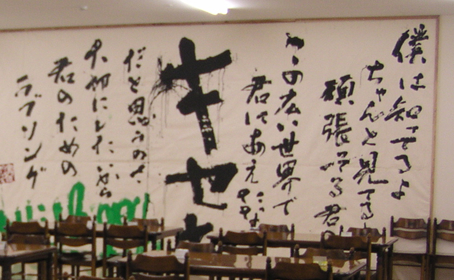 僕は知ってるよ
ちゃんと見てる
頑張ってる君
この広い世界で
君にあえた
キセキ
だと思うのさ
大切にしたいから
君のための
ラブソング